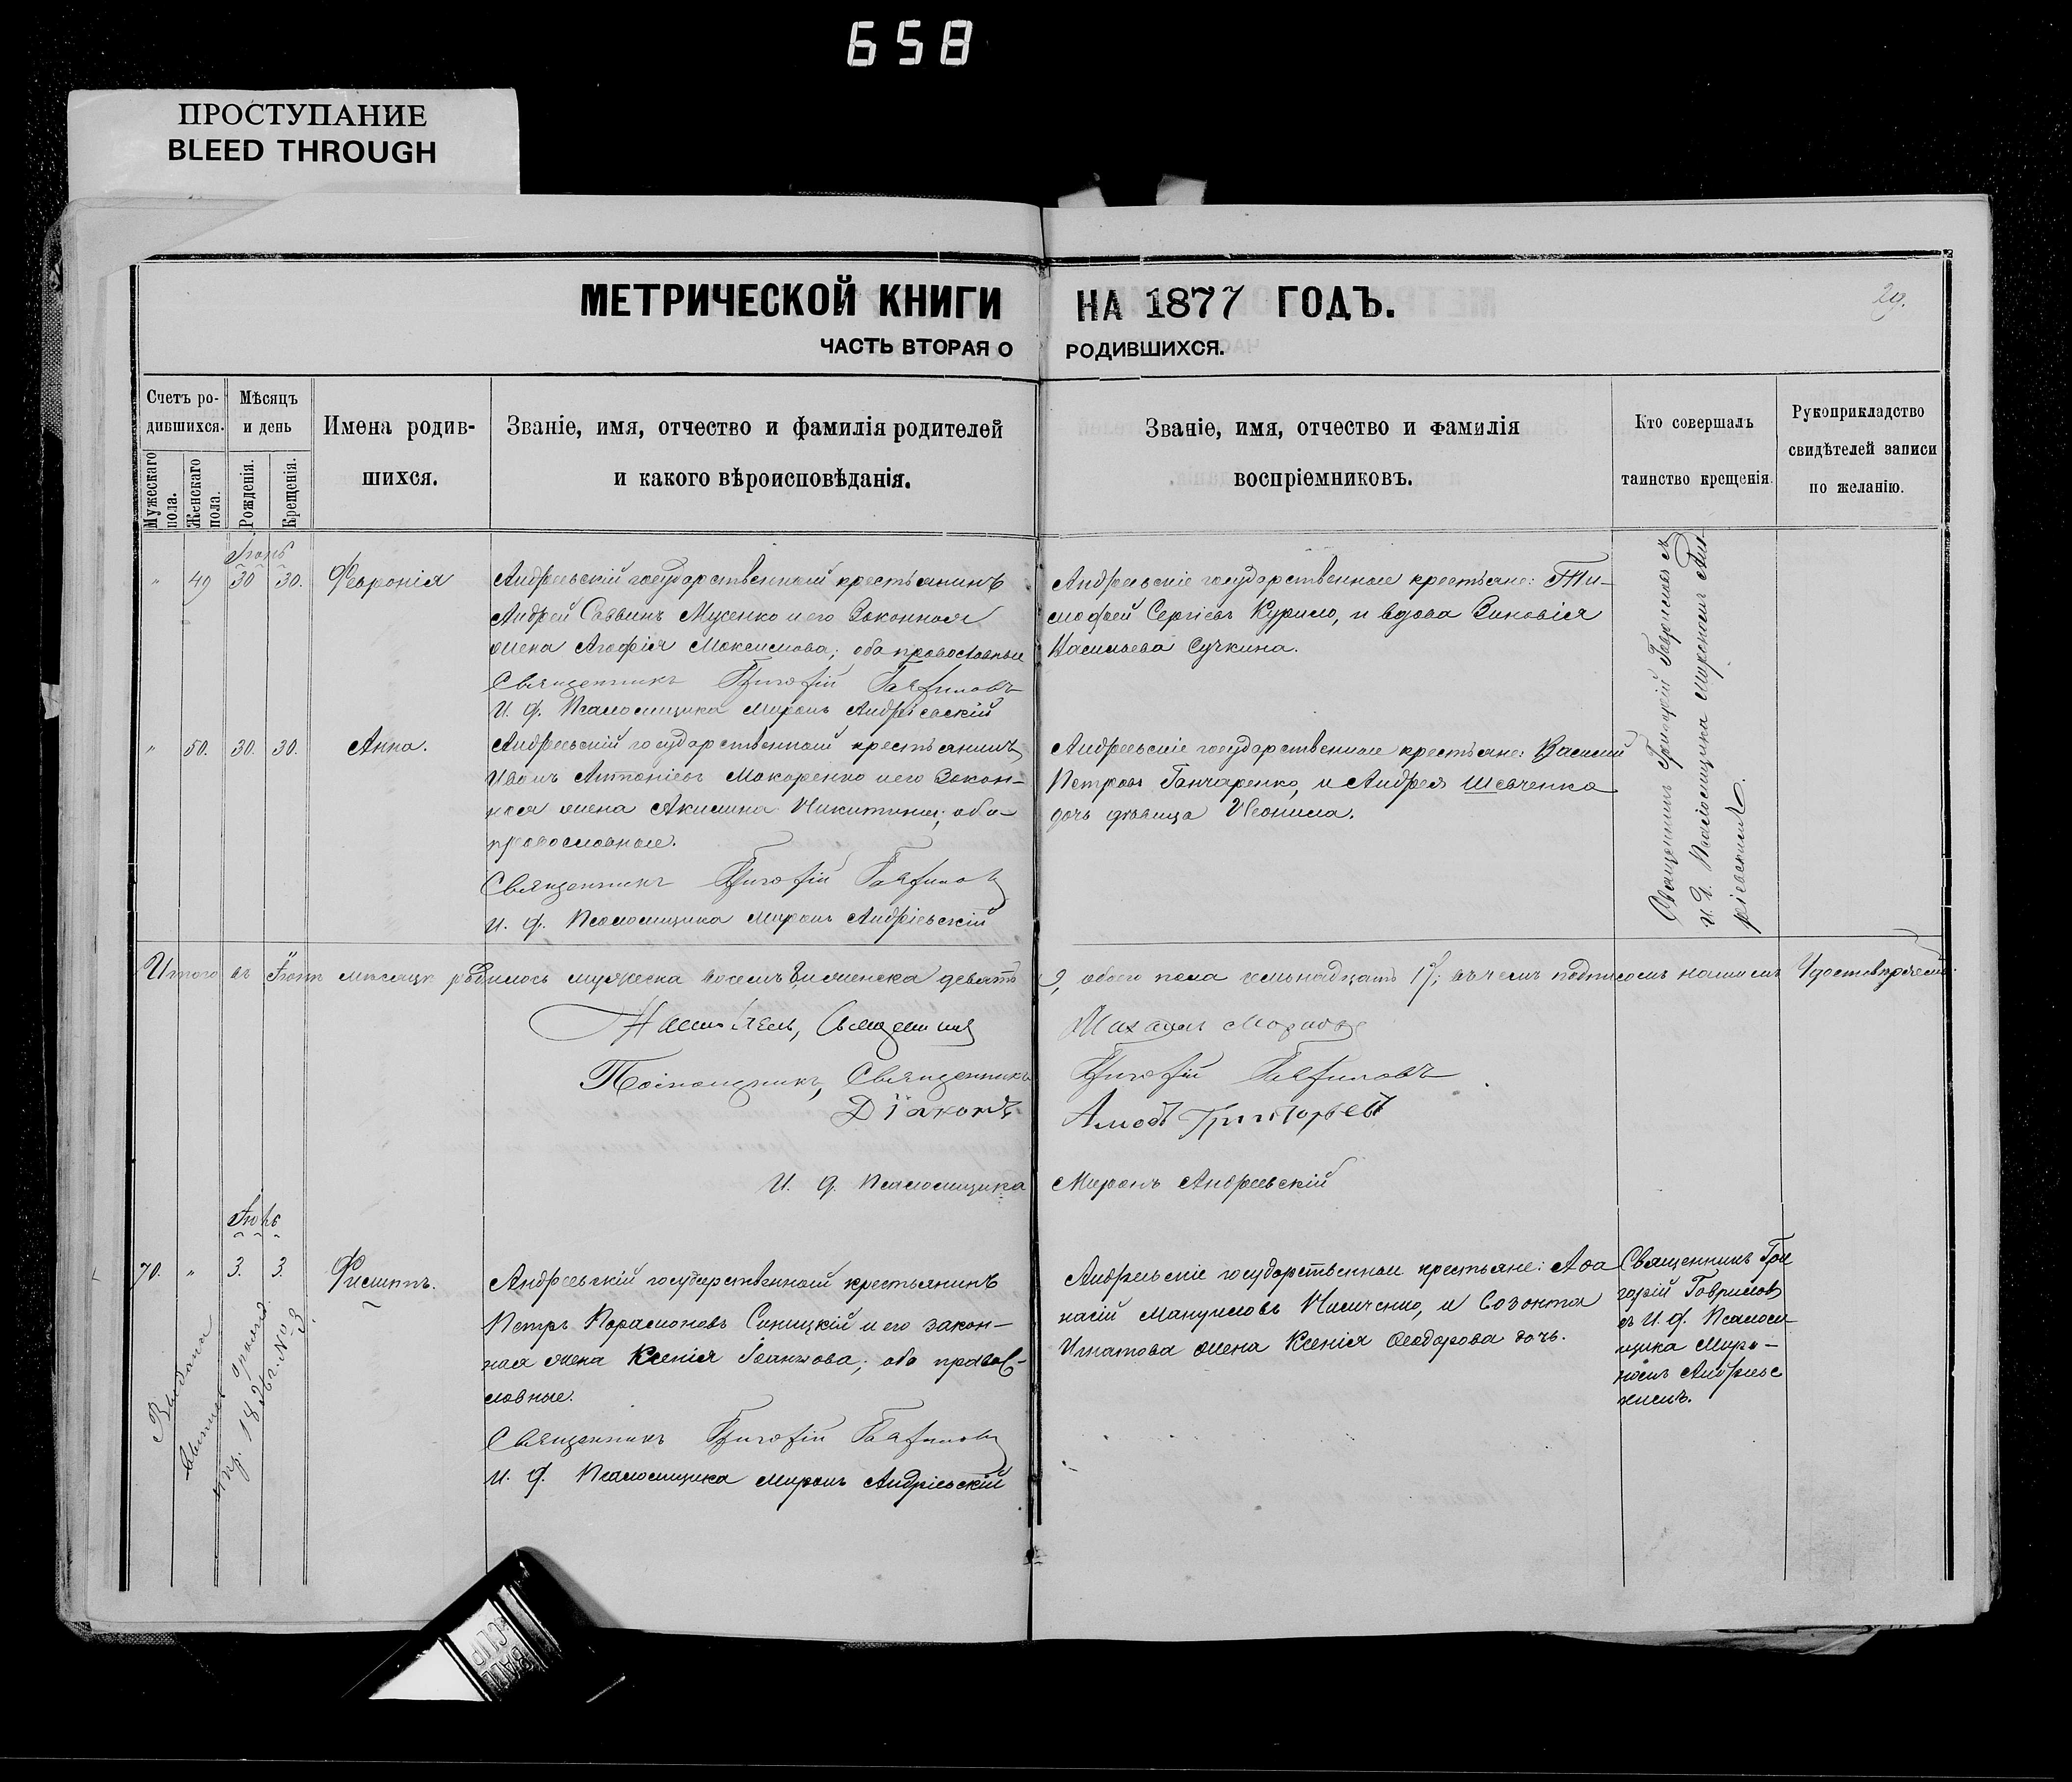 658
ПРОСТУПАНИЕ
BLEED THROUGH
МЕТРИЧЕСКОЙ КНИГИ НА 1877 ГОДЪ.
29.
ЧАСТЬ ВТОРАЯ О РОДИВШИХСЯ.
Счетъ ро-
дившихся.
Мужескаго пола.
Женскаго пола.
Мѣсяцъ
и день
Рожденія.
Крещенія.
Имена родив-
шихся.
Званіе, имя, отчество и фамилія родителей
и какого вѣроисповѣданія.
Званіе, имя, отчество и фамилія
воспріемниковъ.
Кто совершалъ
таинство крещенія.
Рукоприкладство
свидѣтелей записи
по желанію.
Іюнь
" 49 30 30. Февронія
Андреевскій государственный крестьянинъ
Андрей Саввинъ Мусенко и его законная
жена Агафія Максимова; оба православные
Священникъ Григорій Гавриловъ
И. д. Псаломщика Миронъ Андріевскій
Андреевскіе государственные крестьяне: Ти-
мофей Сергіевъ Курило, и вдова Зиновія
Васильева Сучкина.
" 50. 30. 30. Анна.
Андреевскій государственный крестьянинъ
Иванъ Антоніевъ Макаренко и его закон-
ная жена Акилина Никитина; оба
православные.
Священникъ Григорій Гавриловъ
И. д. Псаломщика Миронъ Андріевскій
Андреевскіе государственные крестьяне: Василий
Петровъ Ганчаренко, и Андрея Шевченка
дочь дѣвица Неонила.
Священникъ Григорій Гавриловъ съ
и. д. Псаломщика Мирономъ Анд-
ріевскимъ.
Итого въ Іюнѣ мѣсяцѣ родилось мужеска восемь 8, и женска девять 9, обоего пола семьнадцать 17; въ чемъ подписомъ нашимъ удостовѣряемъ.
Настоятель, Священникъ
Священникъ Григорій Гавриловъ
Діаконъ Григорьевъ
И. д. Псаломщика Миронъ Андреевскій
Іюль
70. " 3. 3. Филиппъ.
Андреевскій государственный крестьянинъ
Петръ Парамоновъ Синицкій и его закон-
ная жена Ксенія Іоаннова; оба правос-
лавные.
Священникъ Григорій Гавриловъ
И. д. Псаломщика Миронъ Андріевскій
Андреевскіе государственные крестьяне: Аѳа
насій Мануиловъ Чиличенко, и Созонта
Игнатова жена Ксенія Ѳеодорова дочь.
Священникъ Гри
горій Гавриловъ
съ И. д. Псалом-
щика Миро-
номъ Андреевс
кимъ.
Выдана